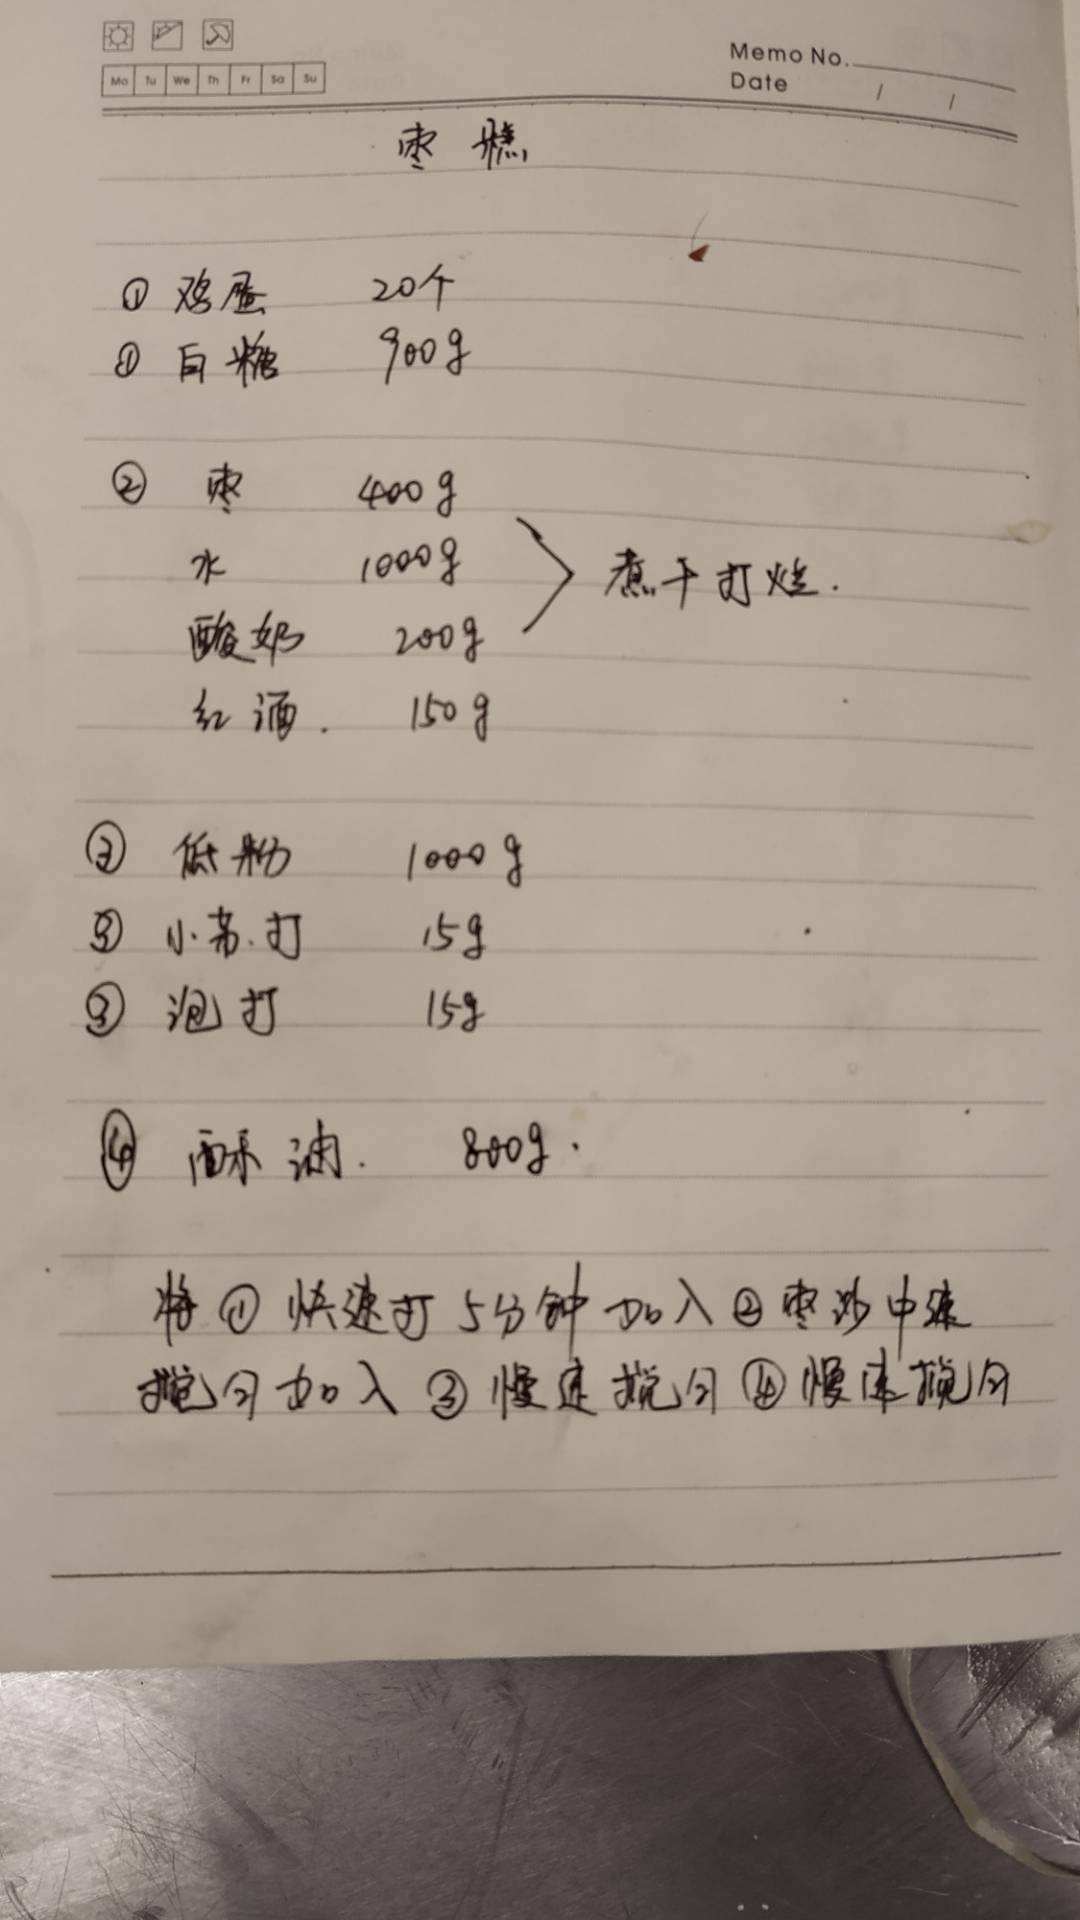 Memo No.
Mo Tu We Th Fr Sa Su
Date / /
枣糕
① 鸡蛋 20个
① 白糖 900g
② 枣 400g
水 1000g
煮干打烂.
酸奶 200g
红酒. 150g
③ 低粉 1000g
③ 小苏打 15g
③ 泡打 15g
④ 酥油. 800g.
将①快速打5分钟加入②枣沙中速
搅匀加入③慢速搅匀④慢速搅匀